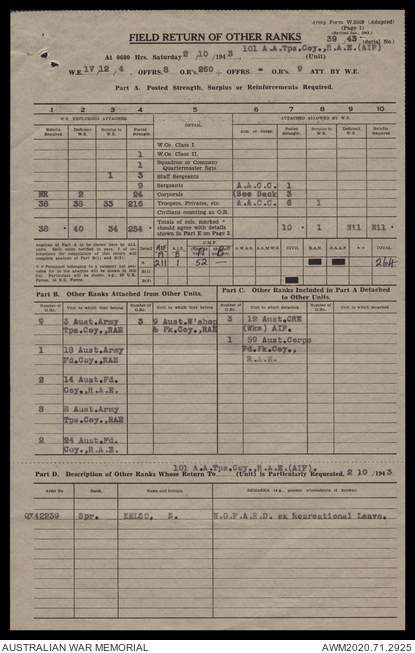 Army Form W.3009 (Adapted)
(Page 1)
FIELD RETURN OF OTHER RANKS
39 43 (Serial No.)
At 0600 Hrs. Saturday 2/10/1943 101 A.A.Tps.Coy.,R.A.E.(AIF) (Unit)
W.E. IV 12/4. OFFRS. 8 O.R's. 260 + OFFRS. - O.R's. 9 ATT. BY W.E.
Part A. Posted Strength, Surplus or Reinforcements Required.
1 2 3 4 5 6 7 8 9 10
W.E. EXCLUDING ATTACHED DETAIL ATTACHED ALLOWED BY W.E.
Reinfts. Required. Deficient W.E. Surplus to W.E. Posted Strength Arm or Corps. Posted Strength Surplus to W.E. Deficient W.E. Reinfts. Required.
W.Os. Class I.
1 W.Os. Class II.
1 Squadron or Company Quartermaster Sgts.
1 3 Staff Sergeants
9 Sergeants A.A.C.C. 1
NR 2 24 Corporals (See Back 3
38 38 33 216 Troopers, Privates, etc. A.A.C.C. 6 1
Civilians counting as O.R.
38 * 40 34 254 * Totals of cols. marked * should agree with totals shown in Part E on Page 2 10 * 1 Nil Nil *
Detail A.I.F. C.M.F. A.W.A.S. A.A.M.W.S. CIVIL R.A.N. R.A.A.F. * * TOTAL
A B A B
211 1 52 — 264
Part B. Other Ranks Attached from Other Units.
Part C. Other Ranks Included in Part A Detached to Other Units.
Number of O.Rs. Unit to which they belong Number of O.Rs. Unit to which they belong Number of O.Rs. Unit to which detached. Number of O.Rs. Unit to which detached.
9 3 Aust.Army Tps.Coy.,RAE 3 9 Aust.W'shop & Pk.Coy.,RAE 3 12 Aust.CRE (Wks) AIF.
1 18 Aust.Army Fd.Coy.,RAE 1 59 Aust.Corps Fd.Pk.Coy., R.A.E.
2 14 Aust.Fd. Coy.,R.A.E.
8 8 Aust.Army Tps.Coy.,RAE
2 24 Aust.Fd. Coy.,R.A.E.
101 A.A.Tps.Coy.,R.A.E.(AIF).
Part D. Description of Other Ranks Whose Return To (Unit) is Particularly Requested. 2/10/1943
Army No Rank. Name and Initials. REMARKS (e.g., present whereabouts if known).
QX42239 Spr. KEISO, S. N.G.F.A.R.D. ex Recreational Leave.
AUSTRALIAN WAR MEMORIAL AWM2020.71.2925